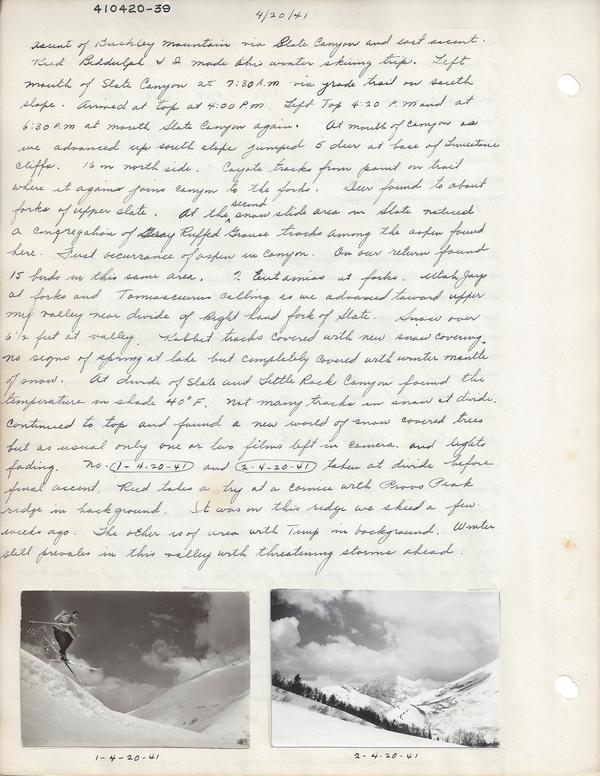 410420-39
4/20/41
Ascent of Buckley Mountain via Slate Canyon and east ascent.
Reed Biddulph & I made this winter skiing trip. Left
mouth of Slate Canyon at 7:30 A.M. via grade trail on south
slope. Arrived at top at 4:00 P.M. Left Top 4:20 P.M and at
6:30 P.M at mouth Slate Canyon again. At mouth of Canyon as
we advanced up south slope jumped 5 deer at base of Limestone
cliffs. 16 on north side. Coyote tracks from point on trail
where it again joins canyon to the forks. Deer found to about
forks of upper slate. At the second snow slide area in Slate noticed
a congregation of Gray Ruffed Grouse tracks among the aspen found
here. First occurrance of aspen in Canyon. On our return found
15 birds in this same area. ? Eutamias at forks. Utah Jays
at forks and Tamiasciurus calling as we advanced toward upper
valley near divide of Right hand fork of Slate. Snow over
6 1/2 feet at valley. Rabbit tracks covered with new snow covering.
no signs of spring at lake but completely covered with winter mantle
of snow. At divide of Slate and Little Rock Canyon found the
temperature in shade 40° F. Not many tracks in snow at divide.
Continued to top and found a new world of snow covered trees
but as usual only one or two films left in camera, and lights
fading. No. 1-4-20-41 and 2-4-20-41 taken at divide before
final ascent. Reed takes a try at a cornice with Provo Peak
ridge in background. It was on this ridge we skied a few
weeks ago. The other is of area with Timp in background. Winter
still prevales in this valley with threatening storms ahead.
1-4-20-41
2-4-20-41